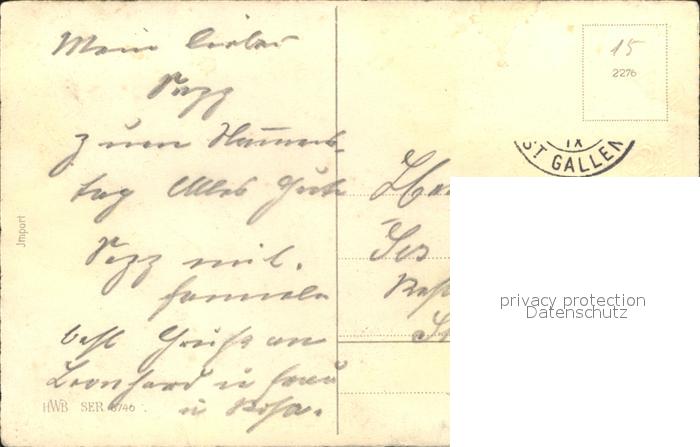 Mein lieber
Sepp
zum Namens-
tag Alles Gute
Sepp mit.
Familie
best Grüße an
Leonhard u Frau
u Rosa.
HWB SER 6746
Import
15
2276
IX
ST GALLEN
privacy protection
Datenschutz